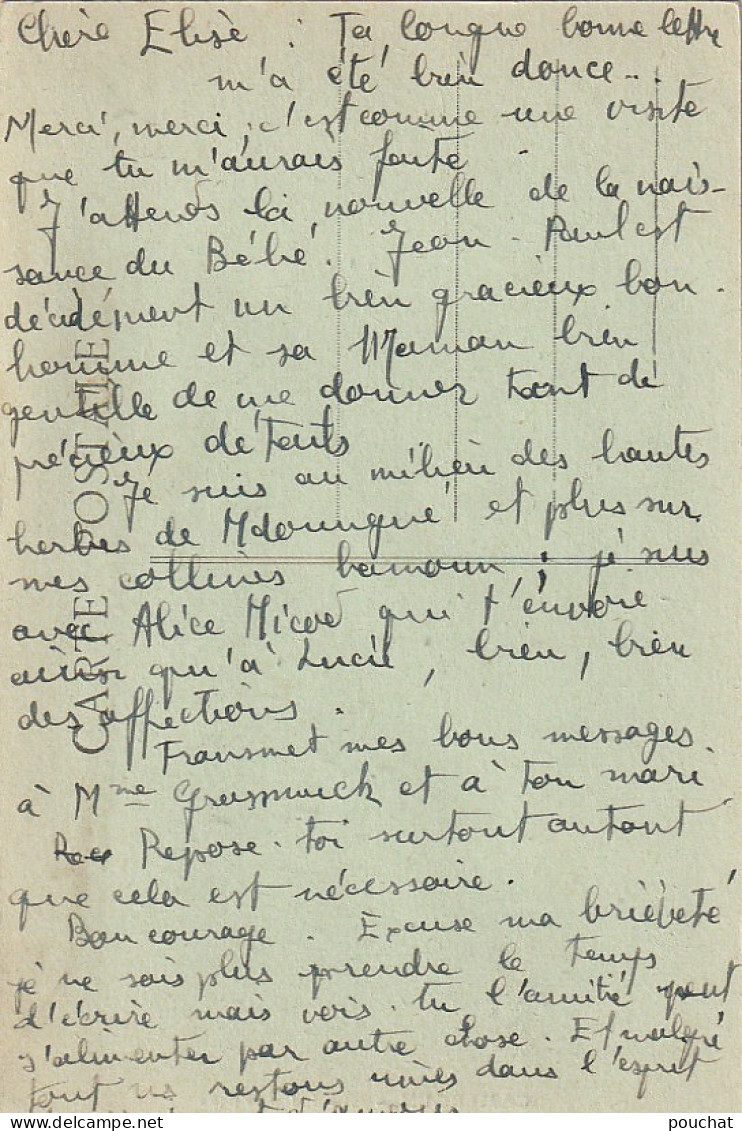 Chère Elise : Ta longue bonne lettre
m'a été bien douce...
Merci, merci, c'est comme une visite
que tu m'aurais faite.
J'attends la nouvelle de la nais-
sance du Bébé. Jean-Paul est
décidément un bien gracieux bon-
homme et sa Maman bien
gentille de me donner tant de
précieux détails
Je suis au milieu des hautes
herbes de Mdoungué et plus sur
mes collines bamoun ; je suis
avec Alice Micod qui t'envoie
ainsi qu'à Lucie, bien, bien
des affections.
Transmet mes bons messages
à Mme et à ton mari
Repose-toi surtout autant
que cela est nécessaire.
Bon courage. Excuse ma brièveté
je ne sais plus prendre le temps
d'écrire mais vois-tu l'amitié peut
s'alimenter par autre chose. Et malgré
tout ns restons unies dans l'esprit
CARTE POSTALE
pouchat